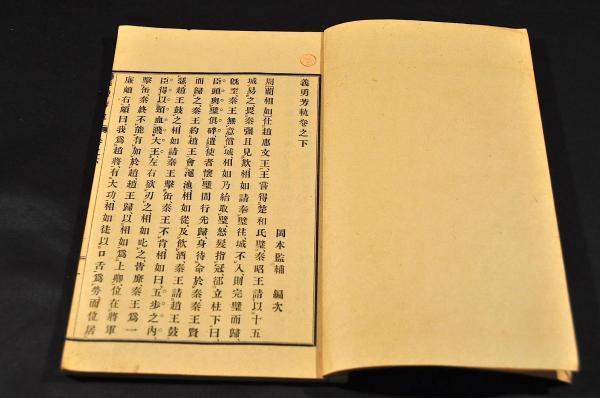 義勇芳軌卷之下
岡本監輔　編次
周藺相如仕趙惠文王、王嘗得楚和氏璧、秦昭王請以十五
城易之、畏秦強且見欺、相如請奉璧往、城不入則完璧而歸、
既至、秦王無意償城、相如乃給取璧、怒髮指冠、郤立柱下曰、
臣頭與璧俱碎、遣使者懷璧間行先歸、身待命於秦、秦王賢
而歸之、秦王約趙王會澠池、相如從、及飲酒、秦王請趙王鼓
瑟、趙王鼓之、相如請秦王擊缶、秦王不肯、相如曰、五步之內、
臣得以頸血濺大王、左右欲刃之、相如叱之、皆靡、秦王爲一
擊缶、秦終不能有加於趙、趙王歸、以相如爲上卿、位在將軍
廉頗右、頗曰、我爲趙將、有大功、相如徒以口舌爲勞、而位居